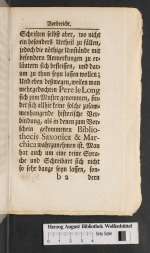 Vorbericht.
Schreiben selbst aber, wo nicht
ein besonders Urtheil zu fällen,
jedoch die nöthige Umstände mit
besondern Anmerckungen zu er-
läutern sich beflissen, und dar-
um zu thun seyn lassen wollen:
Und eben deswegen, weilen man
mehrgedachten Pere le Long
sich zum Muster genommen, fin-
det sich allhie keine solche zusam-
menhangende historische Ver-
bindung, als in denen zum Vor-
schein gekommenen Biblio-
thecis Saxonicæ & Mar-
chicæ wahrzunehmen ist. Man
hat auch um eine reine Spra-
che und Schreibart sich nicht
so sehr bange seyn lassen, son-
b 2 dern
Herzog August Bibliothek Wolfenbüttel